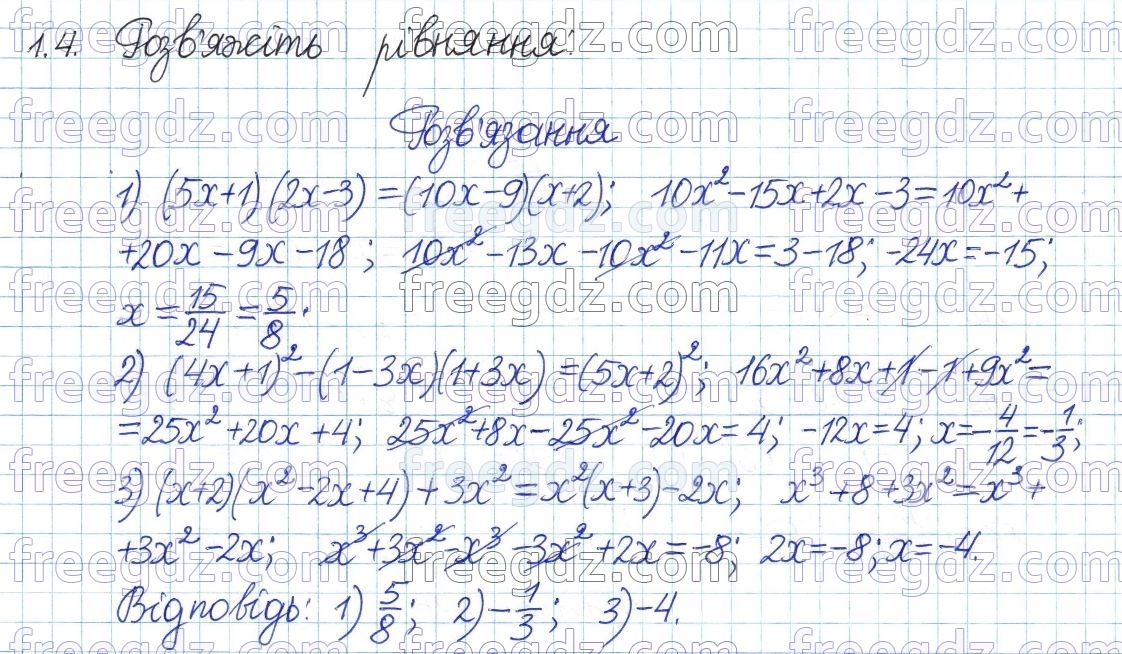 1.4. Розв'яжіть рівняння:
Розв'язання
1) (5x+1)(2x-3) = (10x-9)(x+2); 10x²-15x+2x-3=10x²+
+20x-9x-18; 10x²-13x-10x²-11x=3-18; -24x=-15;
x = 15/24 = 5/8.
2) (4x+1)²-(1-3x)(1+3x)=(5x+2)²; 16x²+8x+1-1+9x²=
=25x²+20x+4; 25x²+8x-25x²-20x=4; -12x=4; x=-4/12=-1/3;
3) (x+2)(x²-2x+4)+3x²=x²(x+3)-2x; x³+8+3x²=x³+
+3x²-2x; x³+3x²-x³-3x²+2x=-8; 2x=-8; x=-4.
Відповідь: 1) 5/8; 2) -1/3; 3) -4.
freegdz.com